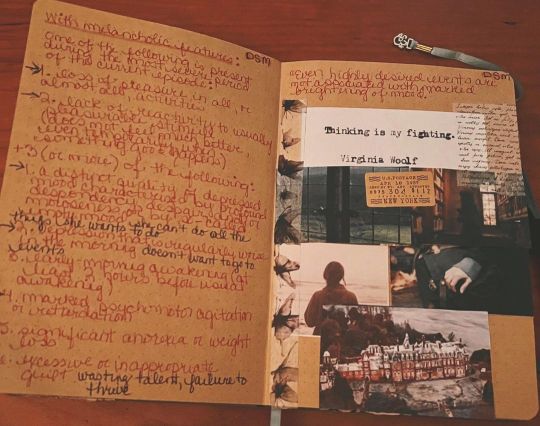 With melancholic features:
DSM
one of the following is present
during the most severe period
of the current episode:
1. loss of pleasure in all, or
almost all, activities
2. lack of reactivity to usually
pleasurable stimuli
(does not feel much better,
even temporarily, when
something good happens)
+3 (or more) of the following:
1. a distinct quality of depressed
mood characterized by profound
despondency, despair, and/or
moroseness or by
mood
things she wants to, she can't do all the
2. depression that is regularly worse
in the morning doesn't want to go to
events
3. early-morning awakening (at
least 2 hours before usual
awakening)
4. marked psychomotor agitation
or retardation
5. significant anorexia or weight
loss
6. excessive or inappropriate
guilt wasting talent, failure to
thrive
DSM
"Even highly desired events are
not associated with marked
brightening of mood.
Thinking is my fighting.
Virginia Woolf
U.S. POSTAGE
NEW YORK